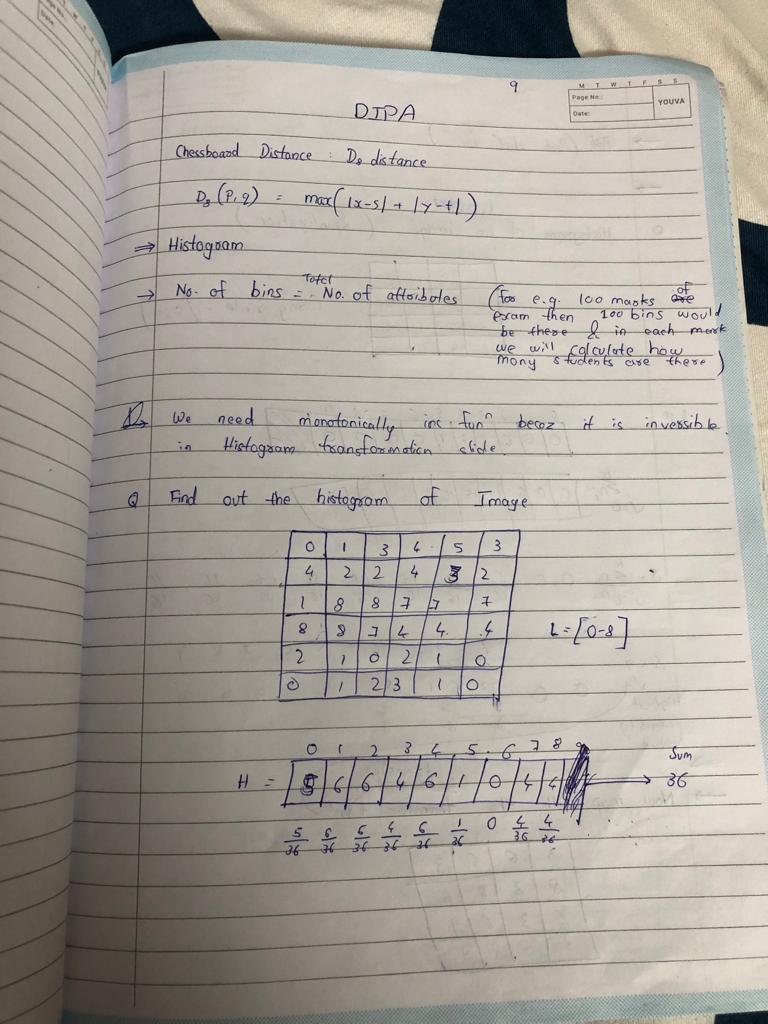 9
M T W T F S S
Page No.:
Date:
YOUVA
DIPA
Chessboard Distance : D8 distance
D8 (P,q) = max( |x-s| + |y-t| )
⇒ Histogram
→ No. of bins = Total No. of attributes (for e.g. 100 marks of
exam then 100 bins would
be there & in each mark
we will calculate how
many students are there)
We need monotonically inc. funⁿ becoz it is inversible
in Histogram transformation slide.
Q Find out the histogram of Image
0 1 3 4 5 3
4 2 2 4 3 2
1 8 8 7 7 7
8 8 7 4 4 4
2 1 0 2 1 0
0 1 2 3 1 0
L = [0-8]
0 1 2 3 4 5 6 7 8
Sum
H = 5 6 6 4 6 1 0 4 4 → 36
5/36 6/36 6/36 4/36 6/36 1/36 0 4/36 4/36